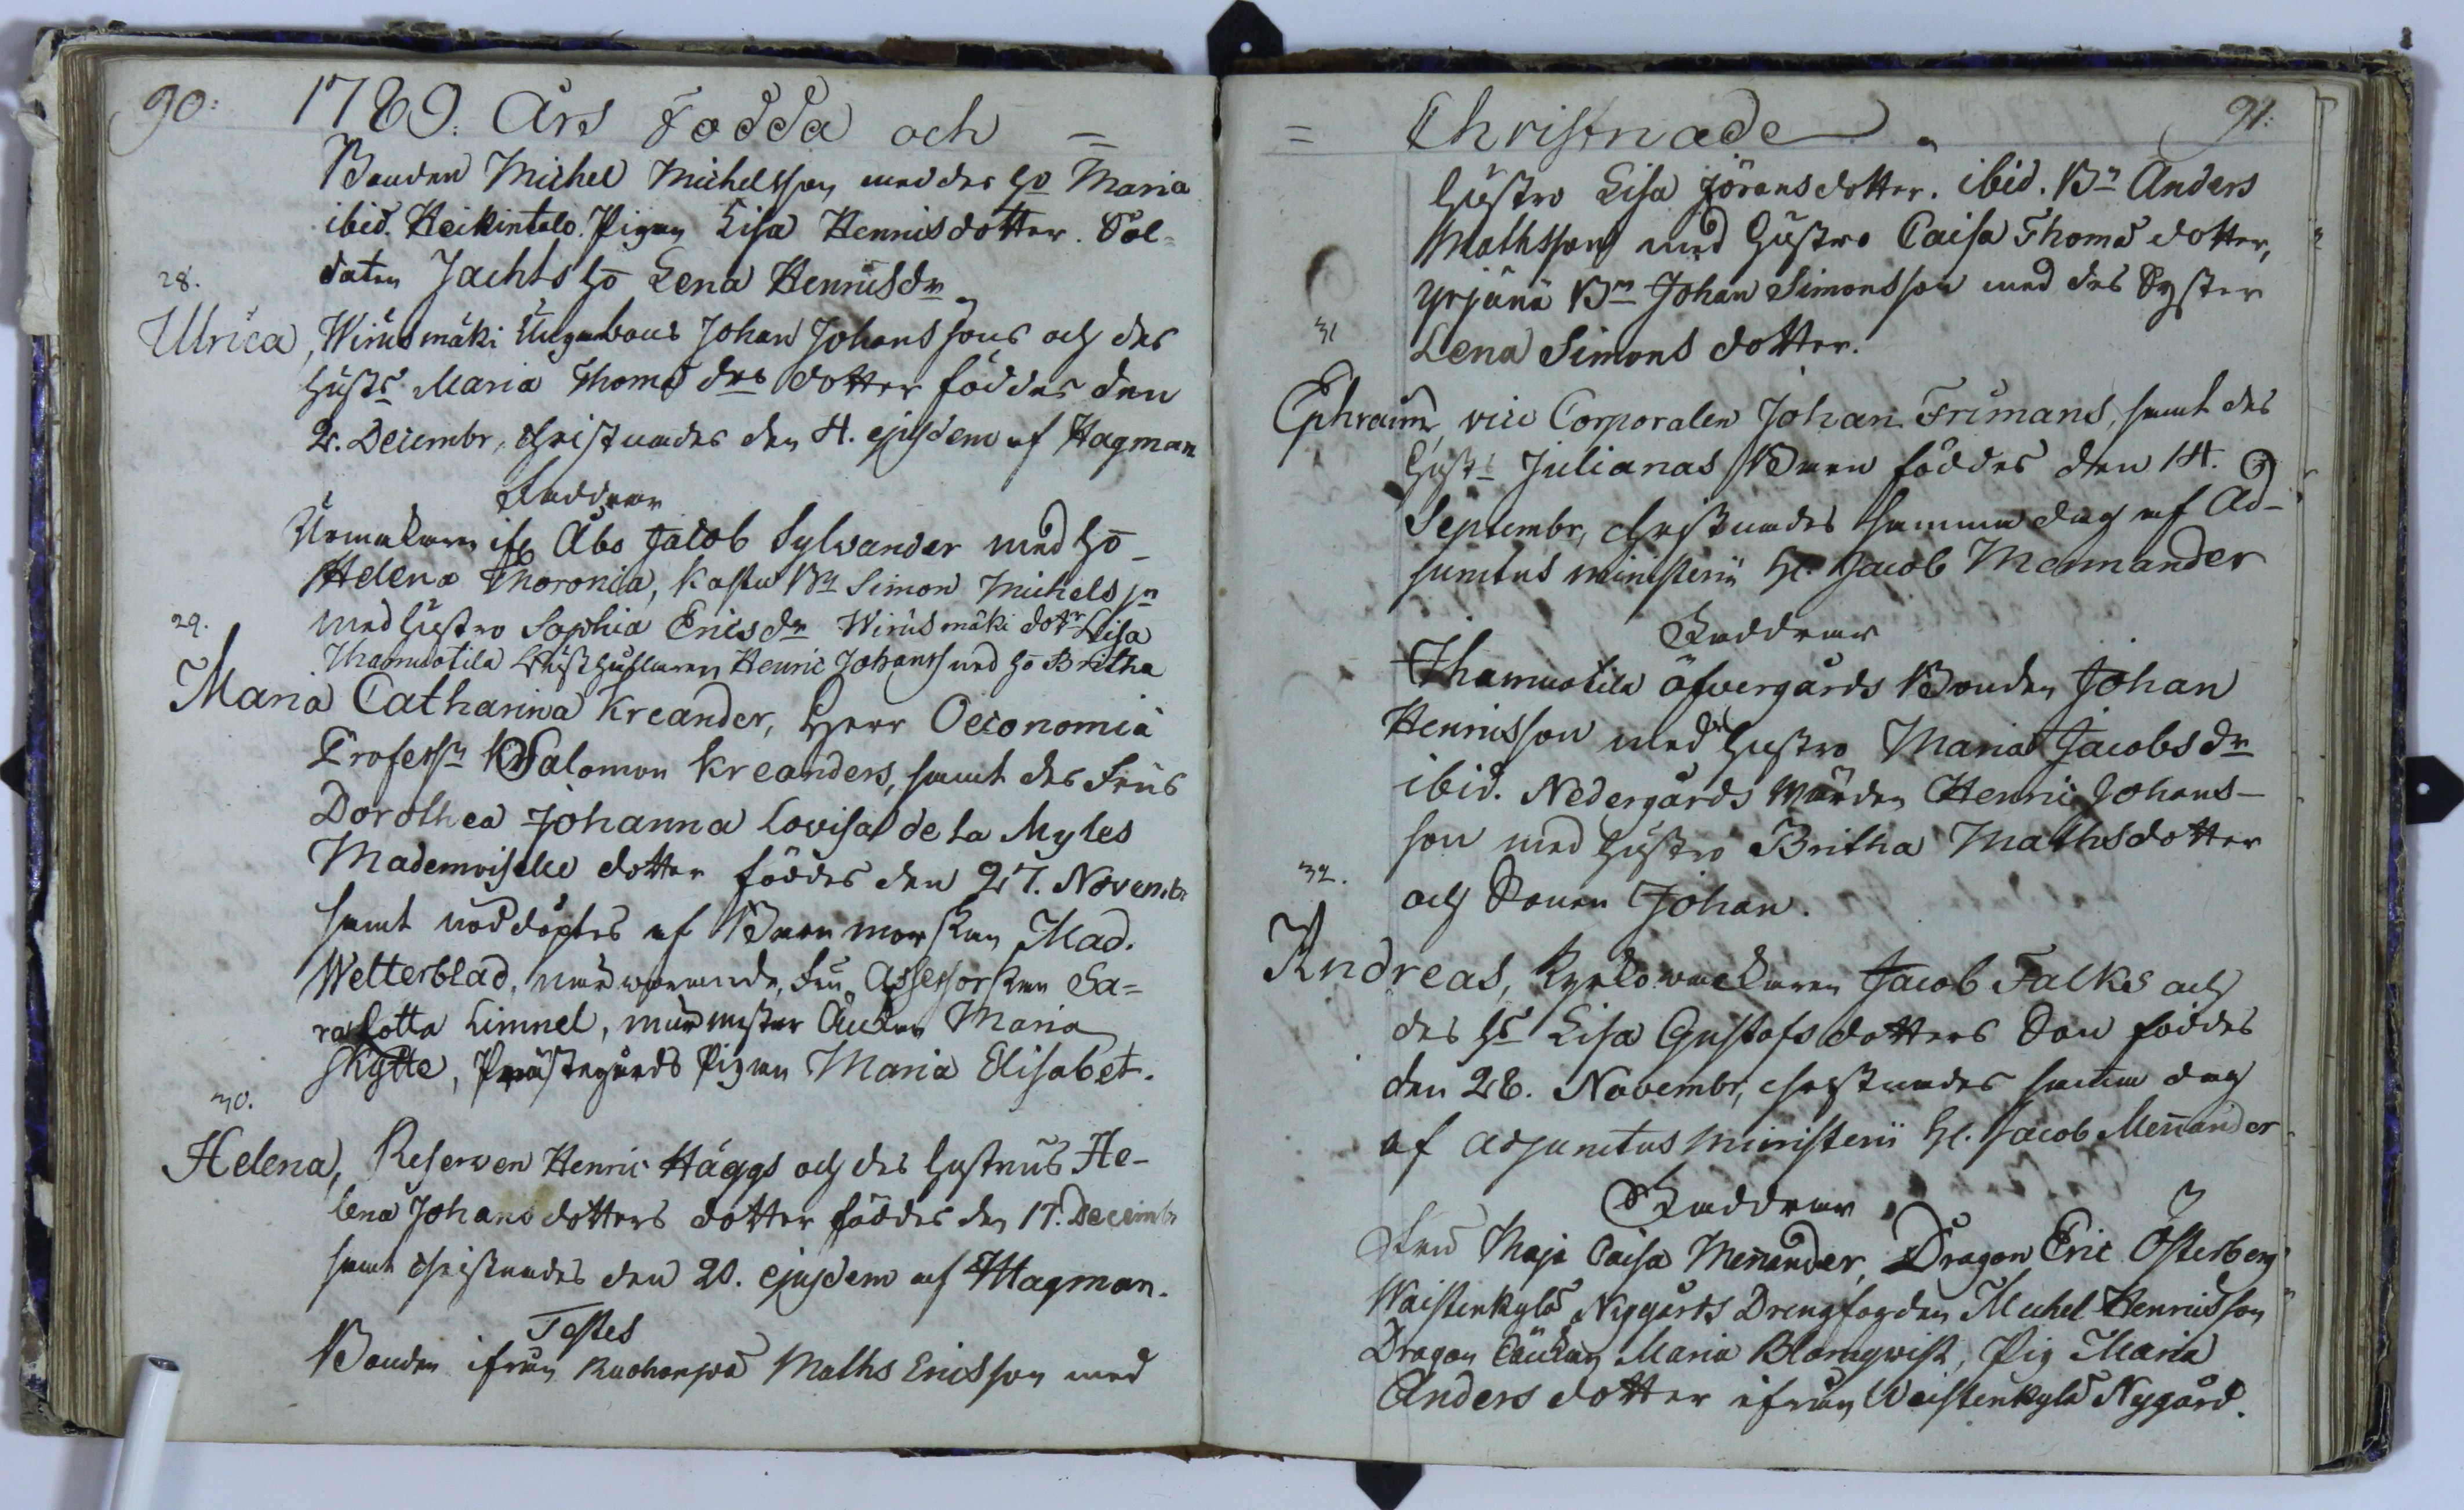 90:
1789. Års Födda och =
Bonden Michel Michelsson med des Ho Maria
ibid. Heikintalo. Pigan Lisa Henricsdotter. Sol-
daten Jachts Ho Lena Henricsdr
28.
Ulrica, Wirusmäki Ungabons Johan Johanssons och des
Hustrs Maria Thomædrs dotter föddes den
2. Decembr, christnades den 4. ejusdem af Hagman
Faddrar
Urmakaren ifr. Åbo Jacob Sylvander med Ho
Helena Thoronia, Kastu Bn Simon Michelssn
29.
med Hustro Sophia Ericsdr Wirusmäki dotr Lisa
Thamuotila Inhysharen Henric Johanss med Ho Britha
Maria Catharina Kreander, Herr Oeconomiæ
Professn Salomon Kreanders, samt des Frus
Dorothea Johanna Lovisa de la Myles
Mademoiselle dotter föddes den 27. Novembr
samt nöddöptes af Barnmorskan Mad.
Wetterblad, närwarande, Fru Assessorskan Sa=
ra Lotta Limnel, murmester Änkan Maria
Skytte, Prästegårds Pigan Maria Elisabet.
30.
Helena, Reserven Henric Häggs och des Hustrus He-
lena Johansdotters dotter föddes den 17. Decembr
samt christnades den 20. ejusdem af Hagman.
Testes
Bonden ifrån Ruohonpä Maths Ericsson med
= Christnade. 91:
Hustro Lisa Jöransdotter. ibid. Bn Anders
Mathsson med Hustro Caisa Thomædotter,
Yrjänä Bn Johan Simonsson med des Syster
31
Lena Simonsdotter.
Ephraim, vice Corporalen Johan Frimans, samt des
Hustrs Julianas Barn föddes den 14.
Septembr, christnades samma dag af Ad-
junctus ministerii Hr. Jacob Mennander
Faddrar
Thamuotila öfvergårds Bonden Johan
Henricsson med Hustro Maria Jacobsdr
ibid. Nedergårds Wärden Henric Johans-
son med Hustro Britha Mathsdotter
32.
och Sonen Johan.
Andreas, Kyrkowachtaren Jacob Falks och
des Hs Lisa Gustafsdotters Son föddes
den 28. Novembr, christnades samma dag
af adjunctus ministerii Hr. Jacob Mennander
Faddrar
Fru Maja Caisa Mennander, Dragon Eric Österberg
Waistenkylä Nygårds Drengfogden Michel Henricsson
Dragon Änkan Maria Blomqwist, Pig Maria
Andersdotter ifrån Waistenkylä Nygård.